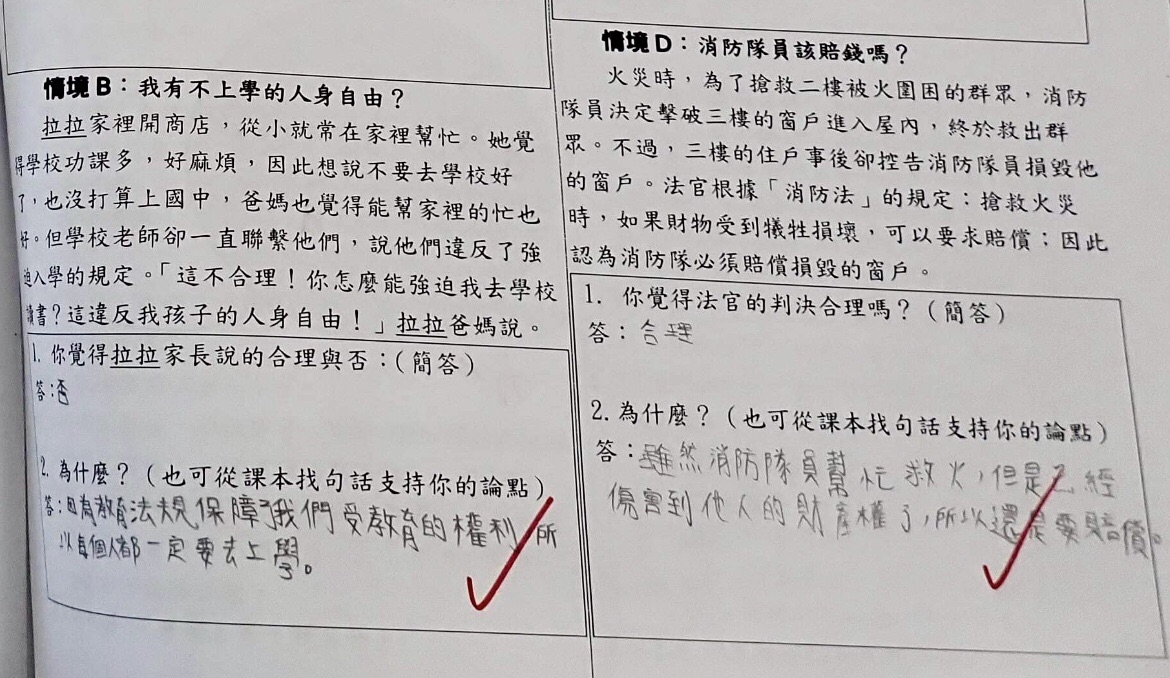 情境 B：我有不上學的人身自由？
拉拉家裡開商店，從小就常在家裡幫忙。她覺
得學校功課多，好麻煩，因此想說不要去學校好
了，也沒打算上國中，爸媽也覺得能幫家裡的忙也
好。但學校老師卻一直聯繫他們，說他們違反了強
迫入學的規定。「這不合理！你怎麼能強迫我去學校
讀書？這違反我孩子的人身自由！」拉拉爸媽說。
1. 你覺得拉拉家長說的合理與否：（簡答）
答：否
2. 為什麼？（也可從課本找句話支持你的論點）
答：因為教育法規保障了我們受教育的權利，所
以每個人都一定要去上學。
情境 D：消防隊員該賠錢嗎？
火災時，為了搶救二樓被火圍困的群眾，消防
隊員決定擊破三樓的窗戶進入屋內，終於救出群
眾。不過，三樓的住戶事後卻控告消防隊員損毀他
的窗戶。法官根據「消防法」的規定：搶救火災
時，如果財物受到犧牲損壞，可以要求賠償；因此
認為消防隊必須賠償損毀的窗戶。
1. 你覺得法官的判決合理嗎？（簡答）
答：合理
2. 為什麼？（也可從課本找句話支持你的論點）
答：雖然消防隊員幫忙救火，但是已經
傷害到他人的財產權了，所以還是要賠償。